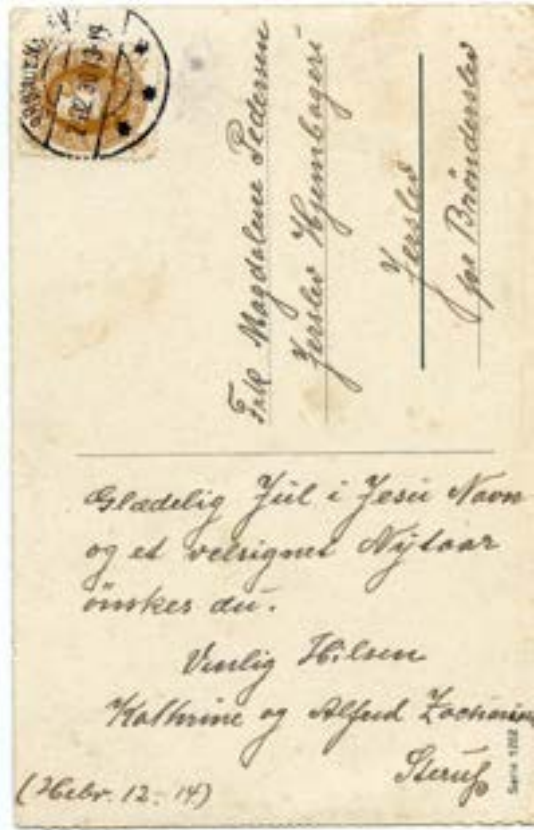 Frk Magdalene Pedersen
Jerslev Hjembageri
Jerslev
pr Brønderslev
Glædelig Jul i Jesu Navn
og et velsignet Nytaar
ønskes du.
Venlig Hilsen
Kathrine og Alfred
Sterup
(Hebr. 12-14)
Serie 1202